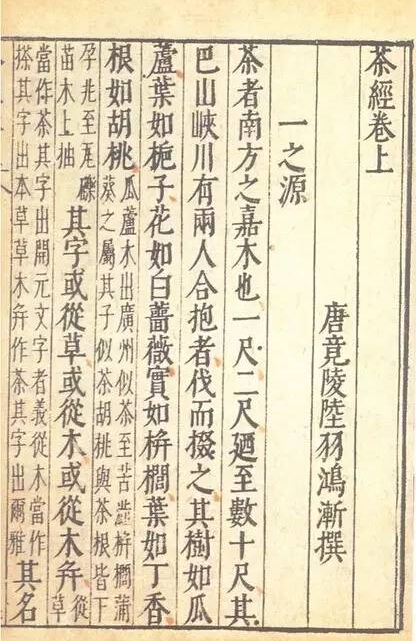 茶經卷上
唐竟陵陸羽鴻漸撰
一之源
茶者南方之嘉木也一尺二尺廼至數十尺其
巴山峽川有兩人合抱者伐而掇之其樹如瓜
蘆葉如梔子花如白薔薇實如栟櫚葉如丁香
根如胡桃
瓜蘆木出廣州似茶至苦澁栟櫚蒲
葵之屬其子似茶胡桃與茶根皆下
孕兆至瓦礫
苗木上抽
其字或從草或從木或從木并
從
草
當作茶其字出開元文字者義從木當作
搭其字出本草草木并作茶其字出爾雅
其名